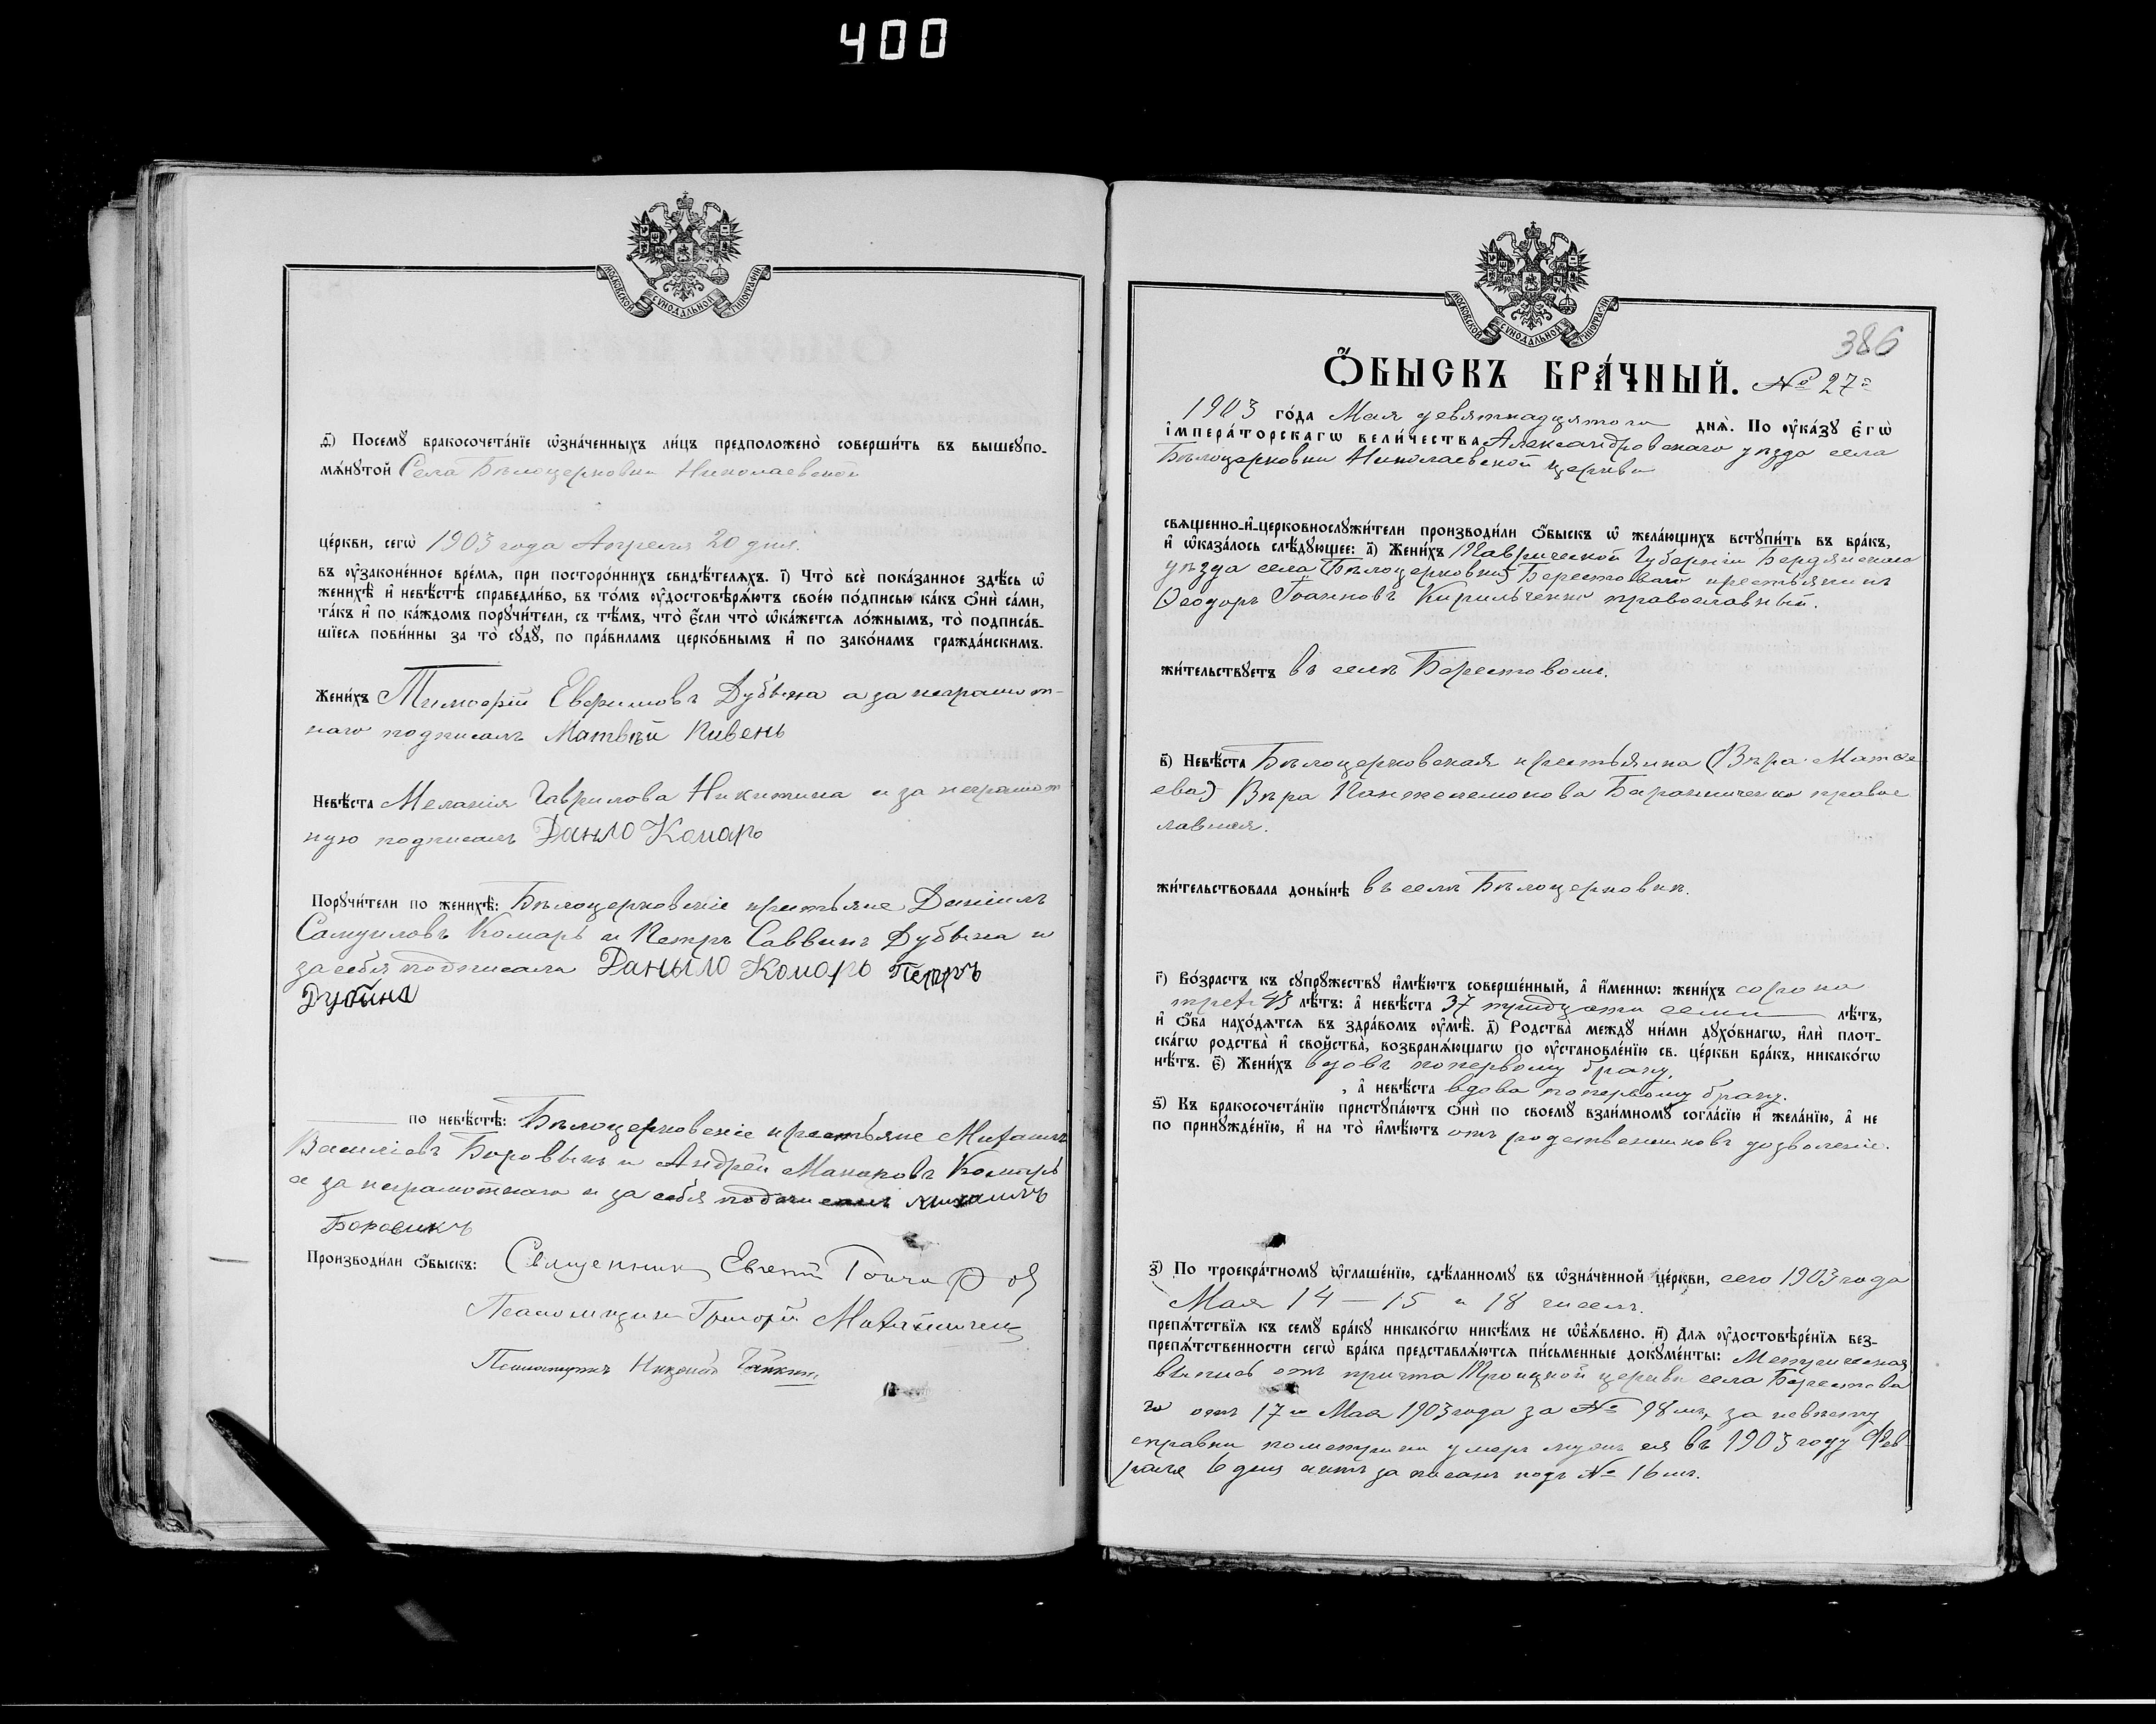 400
МОСКОВСКОЙ СѴНОДАЛЬНОЙ ТИПОГРАФІИ
д҃) Посемꙋ бракосочета́нїе ѡ҆зна́ченныхъ ли́цъ предположено̀ соверши́ть въ вышеꙋпо-
мѧ́нꙋтой Села Бѣлоцерковки Николаевской
це́ркви, сегѡ̀ 1903 года Апреля 20 дня.
въ ᲂу҆зако́ненное вре́мѧ, при посторо́ннихъ свидѣ́телѧхъ. і҃) Что̀ всѐ пока́занное здѣ́сь ѡ҆
женихѣ̀ и҆ невѣ́стѣ справедли́во, въ то́мъ ᲂу҆достовѣрѧ́ютъ свое́ю по́дписью ка́къ ѻ҆нѝ са́ми,
та́къ и҆ по ка́ждомъ порꙋчи́тели, съ тѣ́мъ, что̀ є҆́сли что̀ ѡ҆ка́жетсѧ ло́жнымъ, то̀ подписа́в-
шїесѧ пови́нны за то̀ сꙋдꙋ̀, по пра́виламъ церко́внымъ и҆ по зако́намъ гражда́нскимъ.
Жени́хъ Тимофѣй Евфимовъ Дубына а за неграмот-
наго подписалъ Матвѣй Пивень
Невѣ́ста Меланія Гаврилова Никитина а за неграмот
ную подписалъ Даныло Комаръ
Порꙋчи́тели по женихѣ̀: Бѣлоцерковскіе крестьяне Даніилъ
Самуиловъ Комаръ и Петръ Саввинъ Дубына и
за себя подписали Даныло Комаръ Петръ
Дубына
по невѣ́стѣ: Бѣлоцерковскіе крестьяне Михаилъ
Василіевъ Боровыкъ и Андрей Макаровъ Комаръ
а за неграмотнаго и за себя подписалъ Михаилъ
Боровикъ
Производи́ли ѻ҆́быскъ: Священникъ Евгеній
Псаломщикъ Григорій
Псаломщикъ
МОСКОВСКОЙ СѴНОДАЛЬНОЙ ТИПОГРАФІИ
386
Ѻ҆́БЫСКЪ БРА́ЧНЫЙ. № 27й
1903 го́да Мая девятнадцятого днѧ̀. По ᲂу҆ка́зꙋ є҆гѡ̀
і҆мпера́торскагѡ вели́чества Александровскаго уѣзда села
Бѣлоцерковки Николаевской церкви
свѧщенно-и҆-церковнослꙋжи́тели производи́ли ѻ҆́быскъ ѡ҆ жела́ющихъ встꙋпи́ть въ бра́къ,
и҆ ѡ҆каза́лось слѣ́дꙋющее: а҃) Жени́хъ Таврической Губерніи Бердянскаго
уѣзда села (Бѣлоцерковки) Берестоваго крестьянинъ
Ѳеодоръ Іоанновъ Кирильченко православный.
жи́тельствꙋетъ въ селѣ Берестовомъ.
в҃) Невѣ́ста Бѣлоцерковская крестьянка (Вѣра Матфе
ева) Вѣра Пантелемонова Баранниченко правос
лавная.
жи́тельствовала доны́нѣ въ селѣ Бѣлоцерковкѣ.
г҃) Во́зрастъ къ сꙋпрꙋ́жествꙋ и҆мѣ́ютъ соверше́нный, а҆ и҆́меннѡ: жени́хъ сорока
трех 43 лѣ́тъ: а҆ невѣ́ста 37 тридцати семи лѣ́тъ,
и҆ ѻ҆́ба нахо́дѧтсѧ въ здра́вомъ ᲂу҆мѣ̀. д҃) Родства̀ междꙋ ни́ми дꙋхо́внагѡ, и҆лѝ плот-
ска́гѡ родства̀ и҆ сво́йства̀, возбранѧ́ющагѡ по ᲂу҆становле́нїю св. це́ркви бра́къ, никако́гѡ
нѣ́тъ. є҃) Жени́хъ вдовъ поперьвому браку.
, а҆ невѣ́ста вдова поперьвому браку.
ѕ҃) Къ бракосочета́нїю пристꙋпа́ютъ ѻ҆нѝ по своемꙋ̀ взаи́мномꙋ согла́сїю и҆ жела́нїю, а҆ не
по принꙋжде́нїю, и҆ на то̀ и҆мѣ́ютъ отъ родственниковъ дозволеніе.
з҃) По троекра́тномꙋ ѡ҆глаше́нїю, сдѣ́ланномꙋ въ ѡ҆зна́ченной це́ркви, сего 1903 года
Мая 14 – 15 и 18 чиселъ.
препѧ́тствїѧ къ семꙋ̀ бра́кꙋ никако́гѡ никѣ́мъ не ѡ҆б̾ѧ́влено. и҃) Длѧ ᲂу҆достовѣре́нїѧ без-
препѧ́тственности сегѡ̀ бра́ка представлѧ́ютсѧ пи́сьменные докꙋме́нты: Метрическая
выпись отъ причта Троицкой церкви села Берестова
го отъ 17го Мая 1903 года за № 98мъ, за невѣсту
справки пометрики умеръ мужъ ея въ 1903 году Фев-
раля 6 дня актъ записанъ подъ № 16мъ.